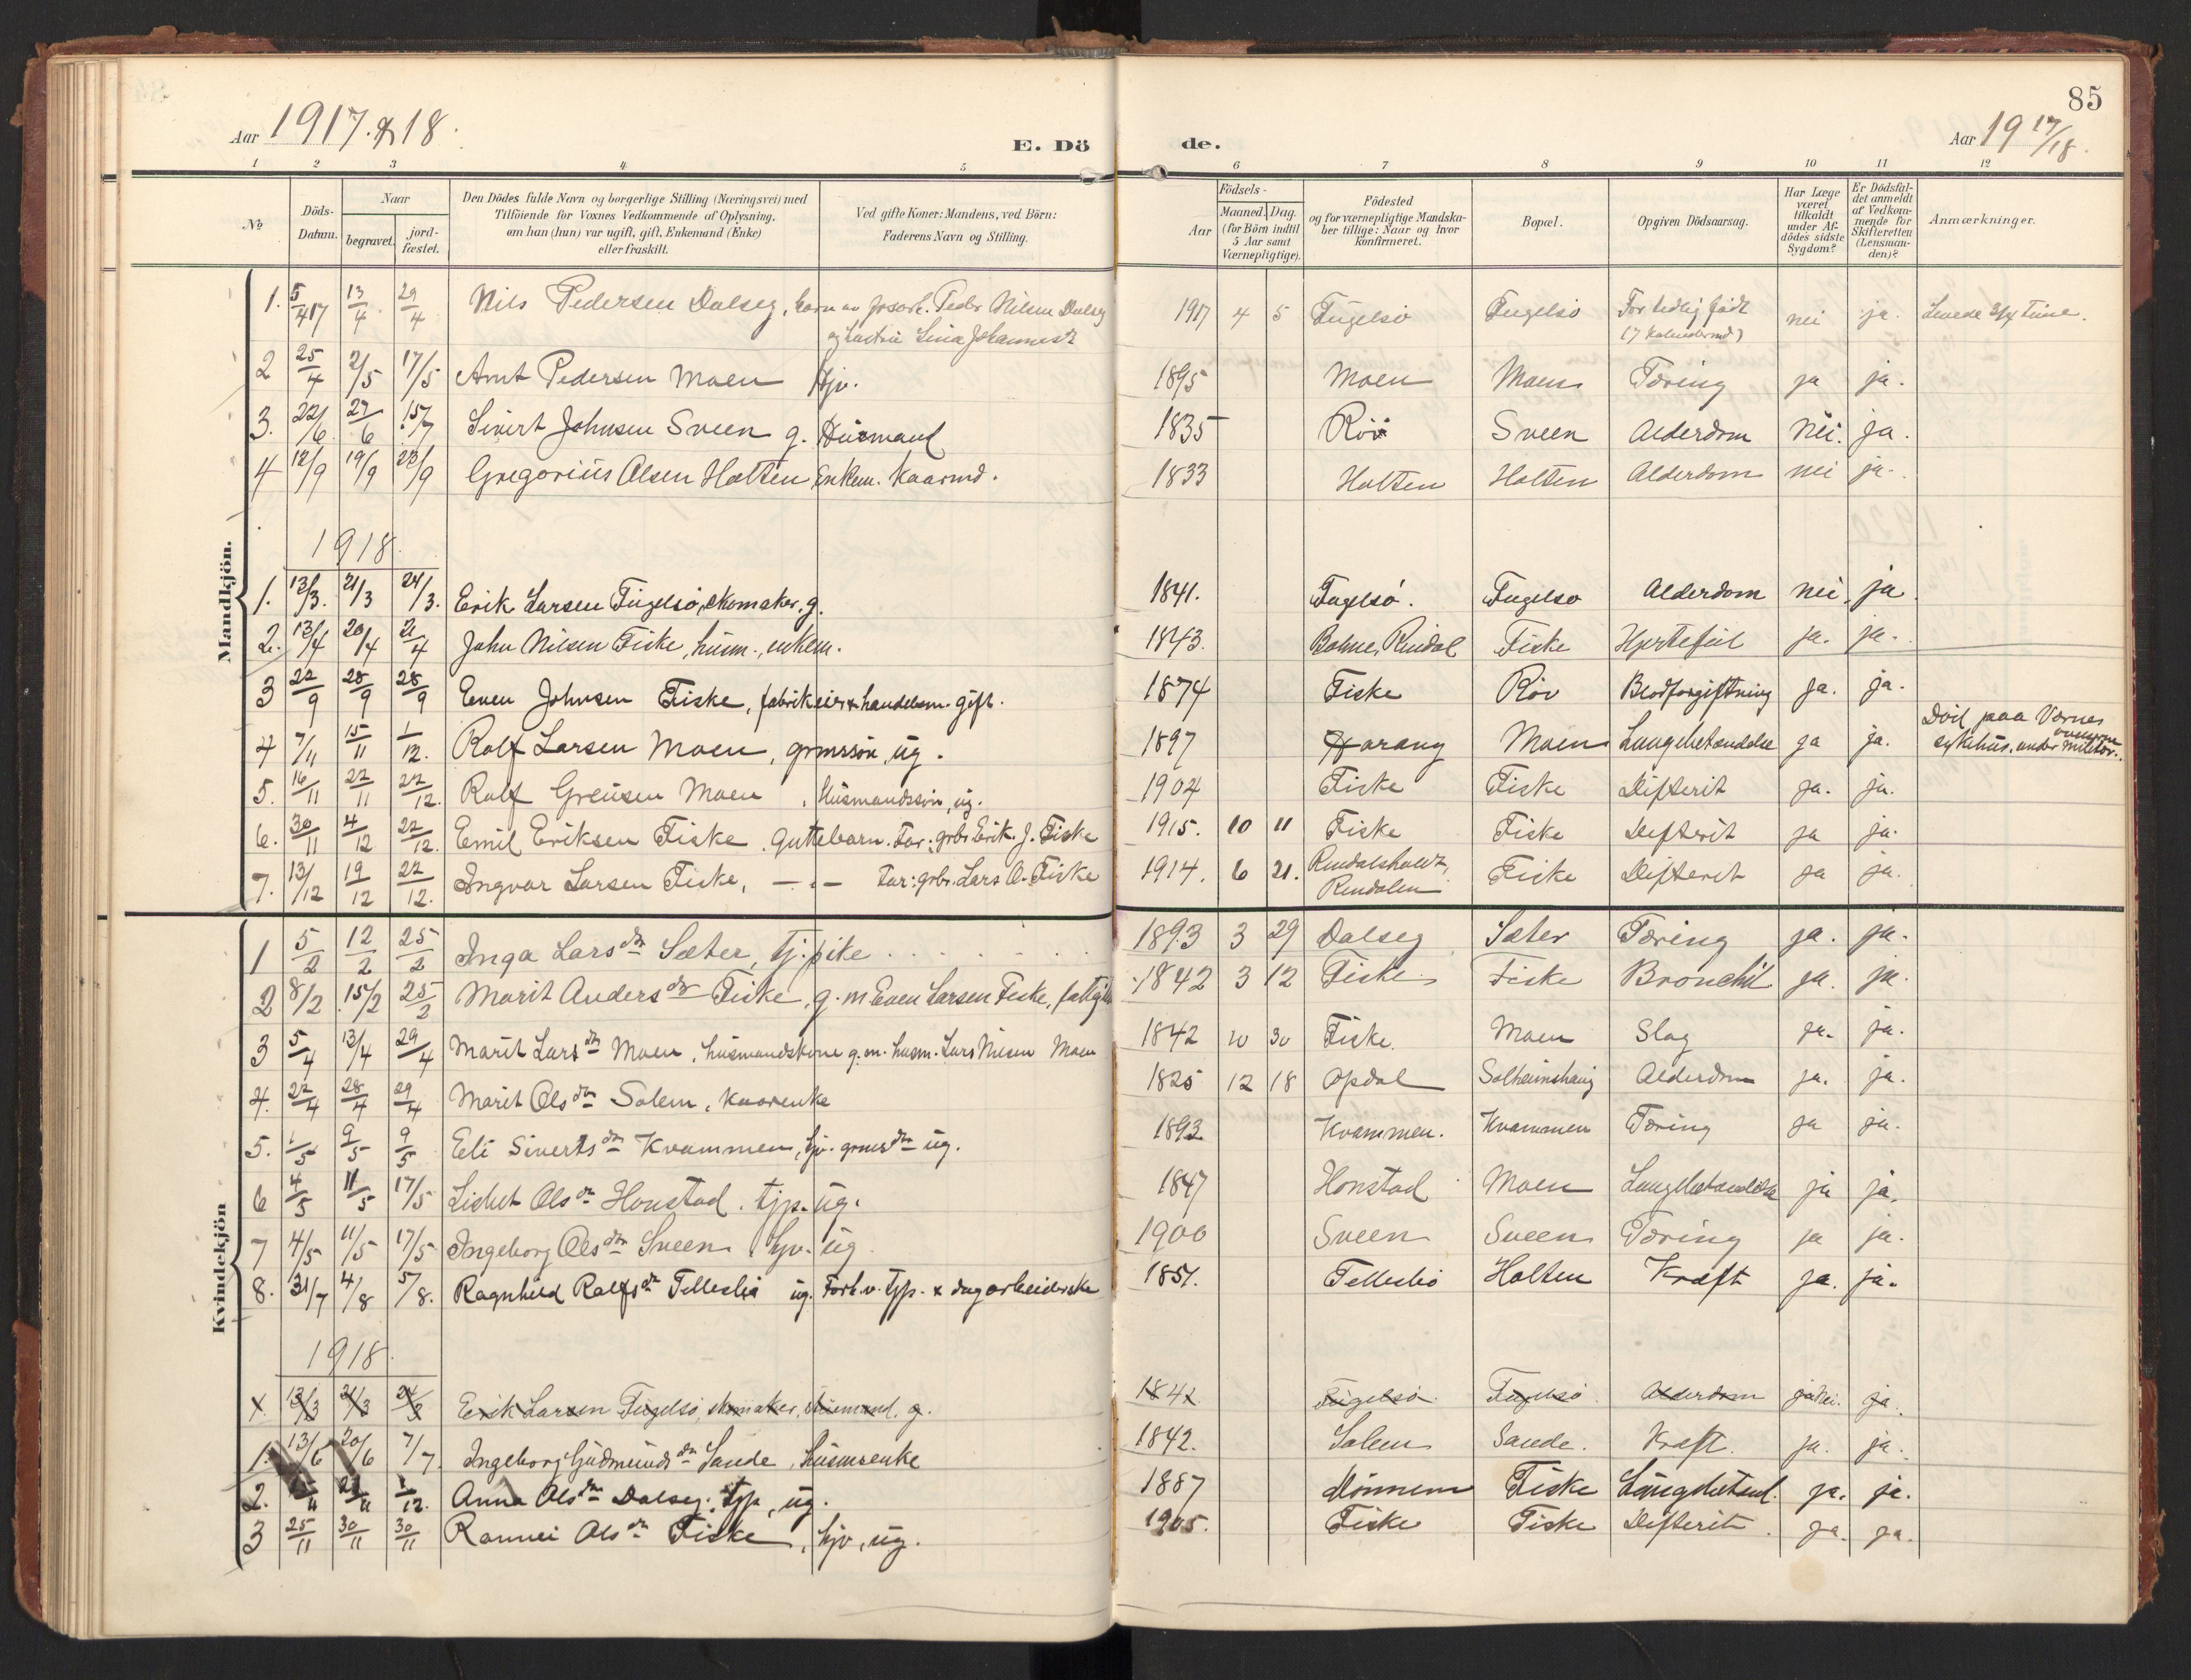 85
Aar 1917 & 18.
E. Dö de.
Aar 19 17/18.
1 2 3 4 5 6 7 8 9 10 11 12
No
Döds-Datum.
Naar
begravet.
jord-fæstet.
Den Dödes fulde Navn og borgerlige Stilling (Næringsvei) med
Tilföiende for Voxnes Vedkommende af Oplysning,
om han (hun) var ugift, gift, Enkemand (Enke)
eller fraskilt.
Ved gifte Koner: Mandens, ved Börn:
Faderens Navn og Stilling.
Födsels-
Aar
Maaned. Dag.
(for Börn indtil
5 Aar samt
Værnepligtige).
Födested
og for værnepligtige Mandska-
ber tillige: Naar og hvor
konfirmeret.
Bopæl.
Opgiven Dödsaarsag.
Har Læge
været
tilkaldt
under Af-
dödes sidste
Sygdom?
Er Dödsfal-
det anmeldt
af Vedkom-
mende for
Skifteretten
(Lensman-
den)?
Anmærkninger.
Mandkjön.
1. 5/4 17 13/4 29/4 Nils Pedersen Dalseg, barn av Peder Nilsen Dalseg 1917 4 5 Fugelsö Fugelsö For tidlig födt nei ja. Levede 3/4 time.
og hustru Lina Johannesdr (7 kalendermd)
2 25/4 2/5 17/5 Arnt Pedersen Moen Hjv. 1895 Moen Moen Tæring ja ja.
3. 22/6 27/6 15/7 Sivert Johnsen Sveen g. Husmand 1835 Röv Sveen Alderdom nei. ja.
4 12/9 19/9 23/9 Gregorius Olsen Holten Enkem. Kaarmd. 1833 Holten Holten Alderdom nei ja.
1918.
1. 13/3. 21/3 24/3. Erik Larsen Fugelsö, skomaker, g. 1841. Fugelsö. Fugelsö Alderdom nei, ja.
2. 13/4 20/4 21/4 John Nilsen Fiske, husm., enkem. 1843. Bolme, Rindal Fiske Hjertefeil ja. ja.
3 22/9 28/9 28/9 Even Johnsen Fiske, fabrikeier & handelsm. gift. 1874 Fiske Röv Blodforgiftning ja. ja.
4 7/11 15/11 1/12. Rolf Larsen Moen, grmssön, ug. 1897 Harang Moen Lungebetændelse ja ja. Död paa Værnes sykehus, under militær.
5. 16/11 22/11 22/12. Rolf Greusen Moen, Husmandssön, ug. 1904 Fiske Fiske Difterit ja. ja.
6. 30/11 4/12 22/12. Emil Eriksen Fiske, Guttebarn. Far: grbr. Erik J. Fiske 1915. 10 11 Fiske Fiske Difterit ja ja.
7. 13/12 19/12 22/12. Ingvar Larsen Fiske, — " — Far: grbr. Lars O. Fiske 1914. 6 21. Rindalsholt, Rindalen Fiske Difterit ja ja.
Kvindekjön
1 5/2 12/2 25/2 Inga Larsdtr Sæter, tj.pike 1893 3 29 Dalseg Sæter Tæring ja. ja.
2 8/2 15/2 25/2 Marit Andersdtr Fiske, g. m Even Larsen Fiske, 1842 3 12 Fiske Fiske Bronchit ja. ja.
3 5/4 13/4 29/4 Marit Larsdtr Moen, husmandskone g. m. husm. Lars Nilsen Moen 1842 10 30 Fiske. Moen Slag ja. ja.
4. 22/4 28/4 29/4 Marit Olsdtr Solem, kaarenke 1825 12 18 Opdal Solheimshaug Alderdom ja. ja.
5. 1/5 9/5 9/5 Eli Sivertsdtr Kvammen, hjv. grmsdtr ug. 1893 Kvammen. Kvammen Tæring ja ja.
6 4/5 11/5 17/5 Lisbet Olsdtr Honstad. tjp. ug. 1847 Honstad Moen Lungebetændelse ja ja.
7 4/5 11/5 17/5 Ingeborg Olsdtr Sveen, hjv. ug 1900 Sveen Sveen Tæring ja ja.
8. 31/7 4/8 5/8. Ragnhild Rolfsdtr Telleslia ug. Forh.v. tjp. & dagarbeiderske 1851. Telleslia Holten Kræft ja. ja.
1918.
1. 13/3 21/3 24/3 Erik Larsen Fugelsö, skomaker, husmand. g. 1841 Fugelsö Fugelsö Alderdom nei. ja.
1. 13/6 20/6 7/7 Ingeborg Gudmundsdtr Sande, husmenke 1842. Solem Sande. Kræft. ja. ja.
2. 1/12. Anna Olsdtr Dalseg, tjp, ug. 1887 Mönnem Fiske Lungebetænd. ja. ja.
3 25/11 30/11 30/11 Rannei Olsdtr Fiske, hjv, ug. 1905. Fiske Fiske Difterit. ja. ja.